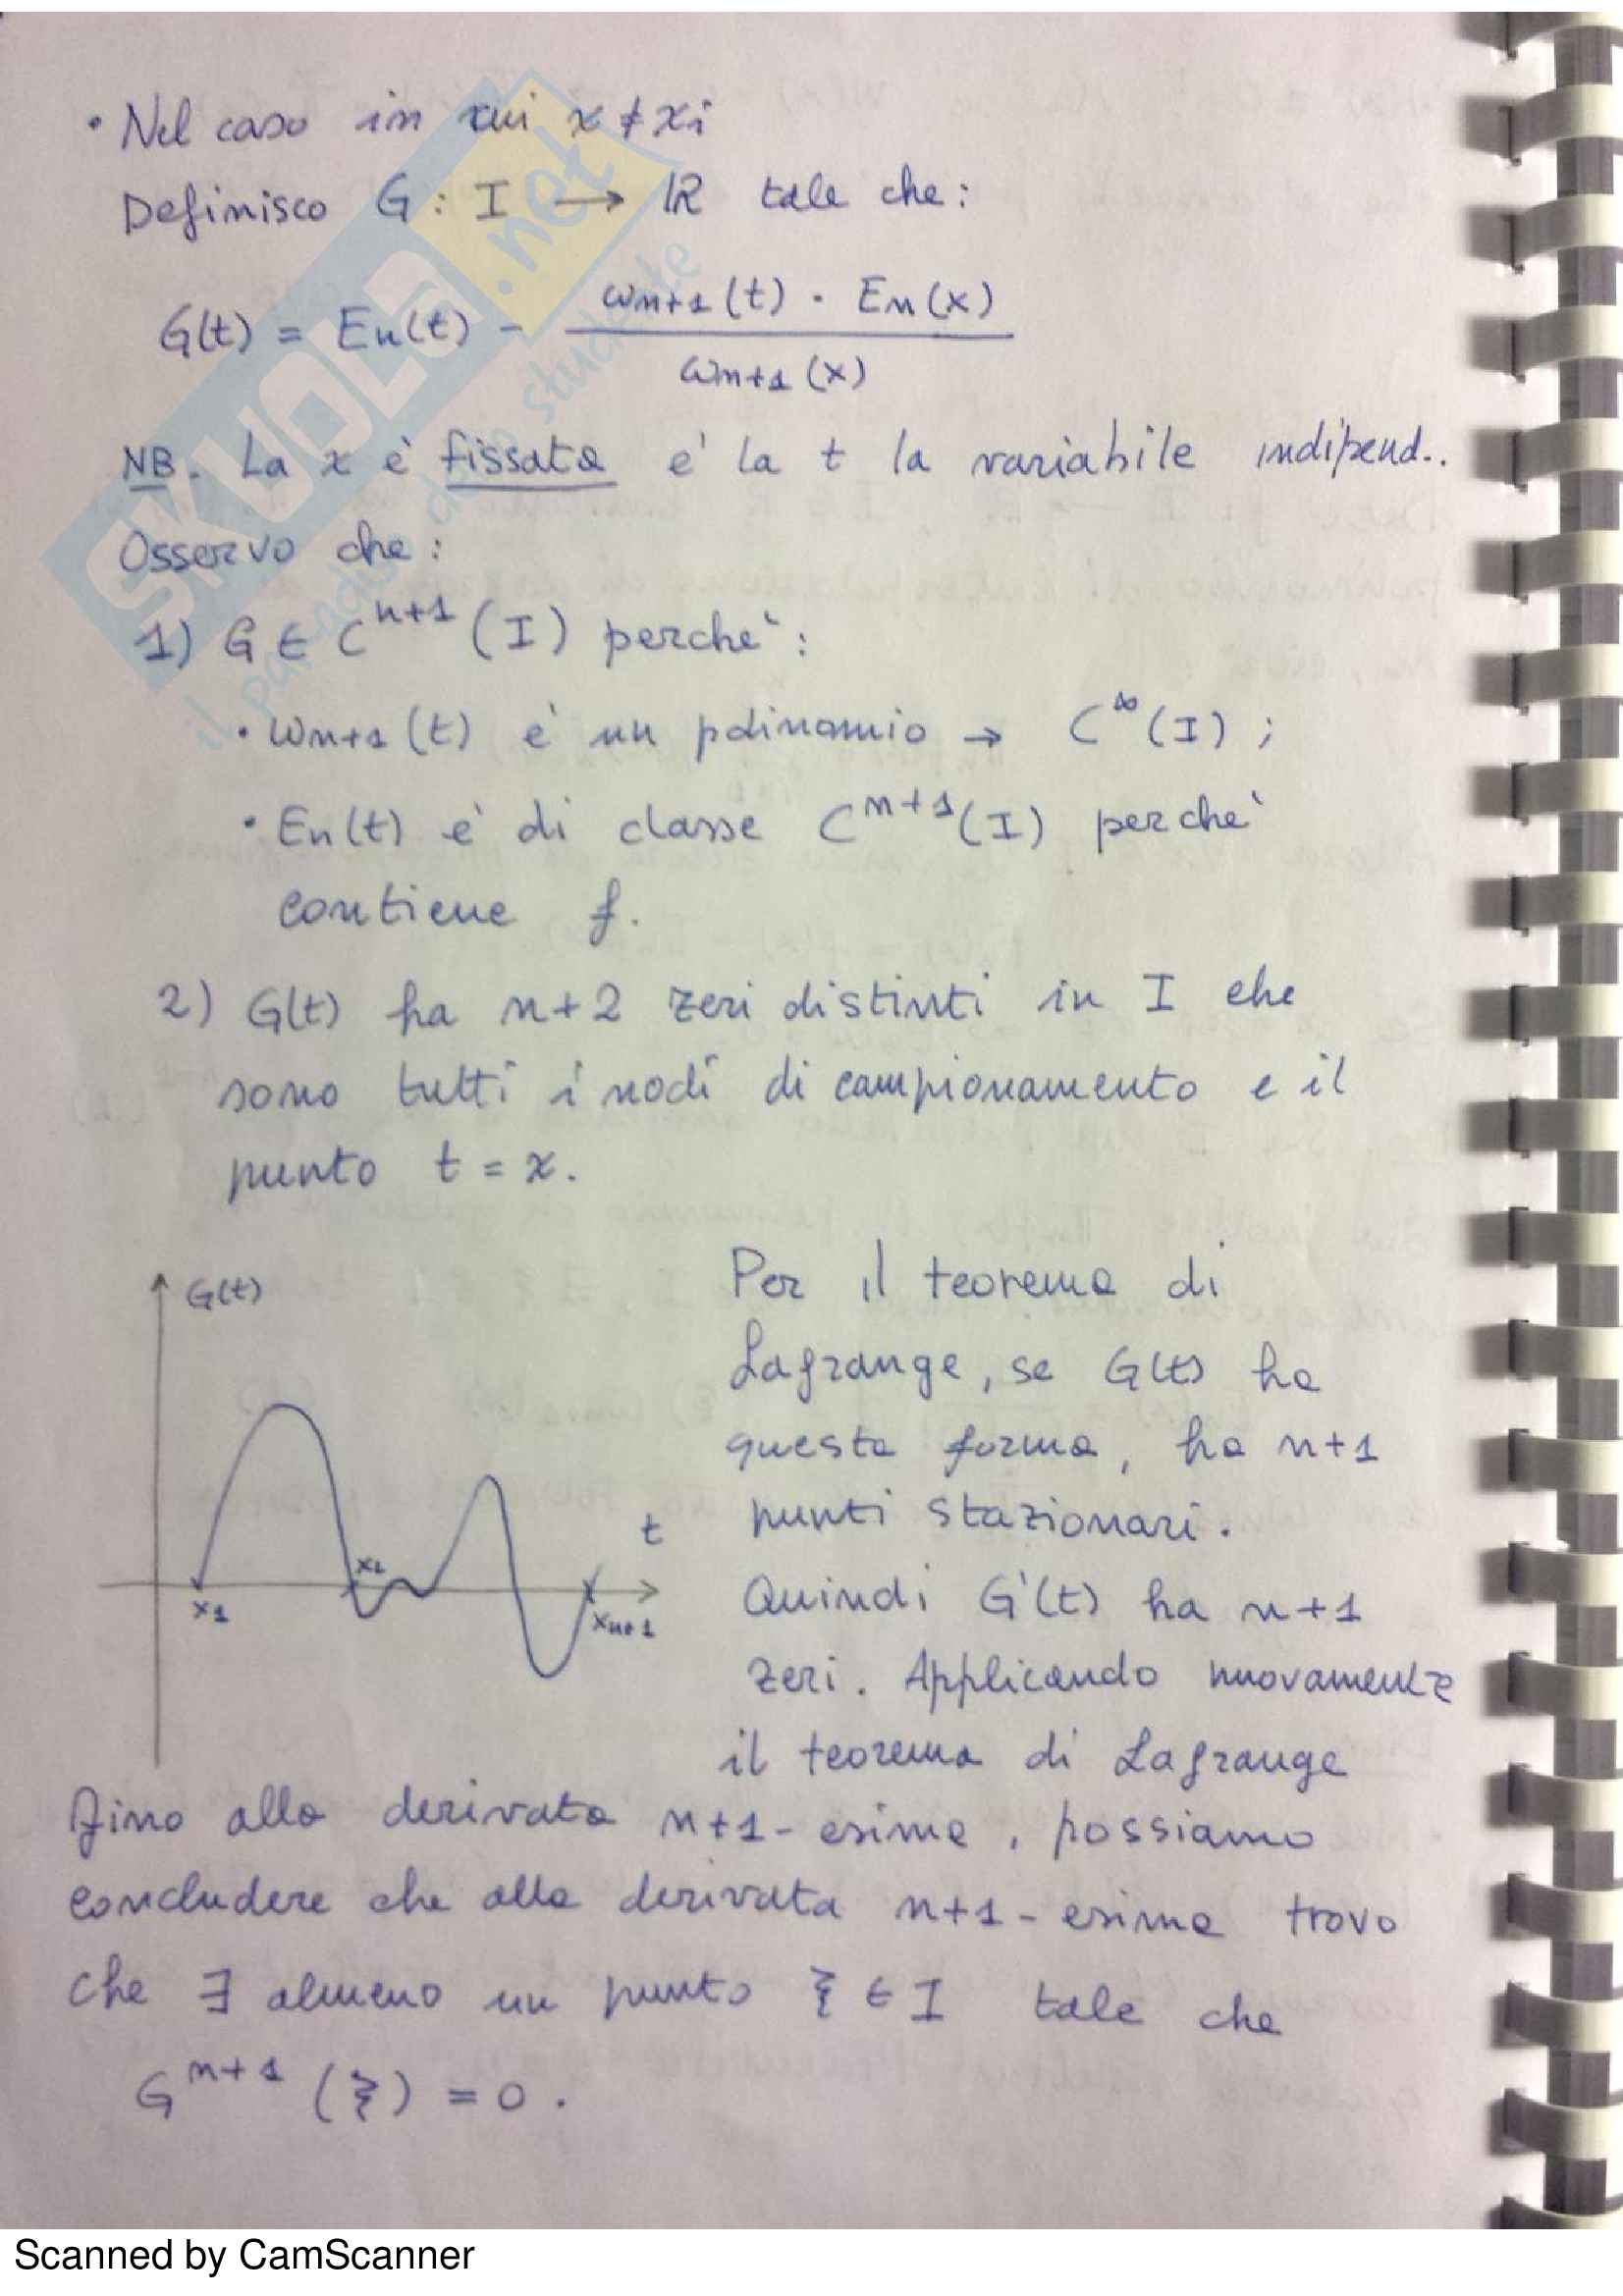 • Nel caso in cui x ≠ xi
Definisco G : I → ℝ tale che :
G(t) = En(t) - ωn+1 (t) · En(x)
ωn+1 (x)
NB. La x è fissata e' la t la variabile indipend..
Osservo che :
1) G ∈ C^n+1 (I) perche' :
• ωn+1 (t) e' un polinomio → C^∞ (I) ;
• En(t) e' di classe C^n+1 (I) perche'
contiene f.
2) G(t) ha n+2 zeri distinti in I che
sono tutti i nodi di campionamento e il
punto t = x.
G(t)
t
x1
x2
xn+1
Per il teorema di
Lagrange, se G(t) ha
questa forma, ha n+1
punti stazionari.
Quindi G'(t) ha n+1
zeri. Applicando nuovamente
il teorema di Lagrange
fino alla derivata n+1-esima, possiamo
concludere che alla derivata n+1-esima trovo
che ∃ almeno un punto ξ ∈ I tale che
G^n+1 (ξ) = 0 .
SKUOLA.net
il paradiso dello studente
Scanned by CamScanner